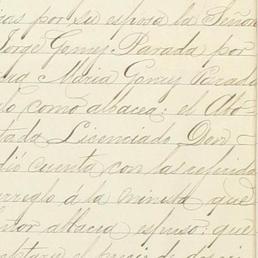 por su esposa la Señor
Jorge Gomez Parada por
Maria Gomez Parada
como albacea: el Abo-
Licenciado Don
dió cuenta con las referida
arreglo á la minuta que
albacea esposo: que
el